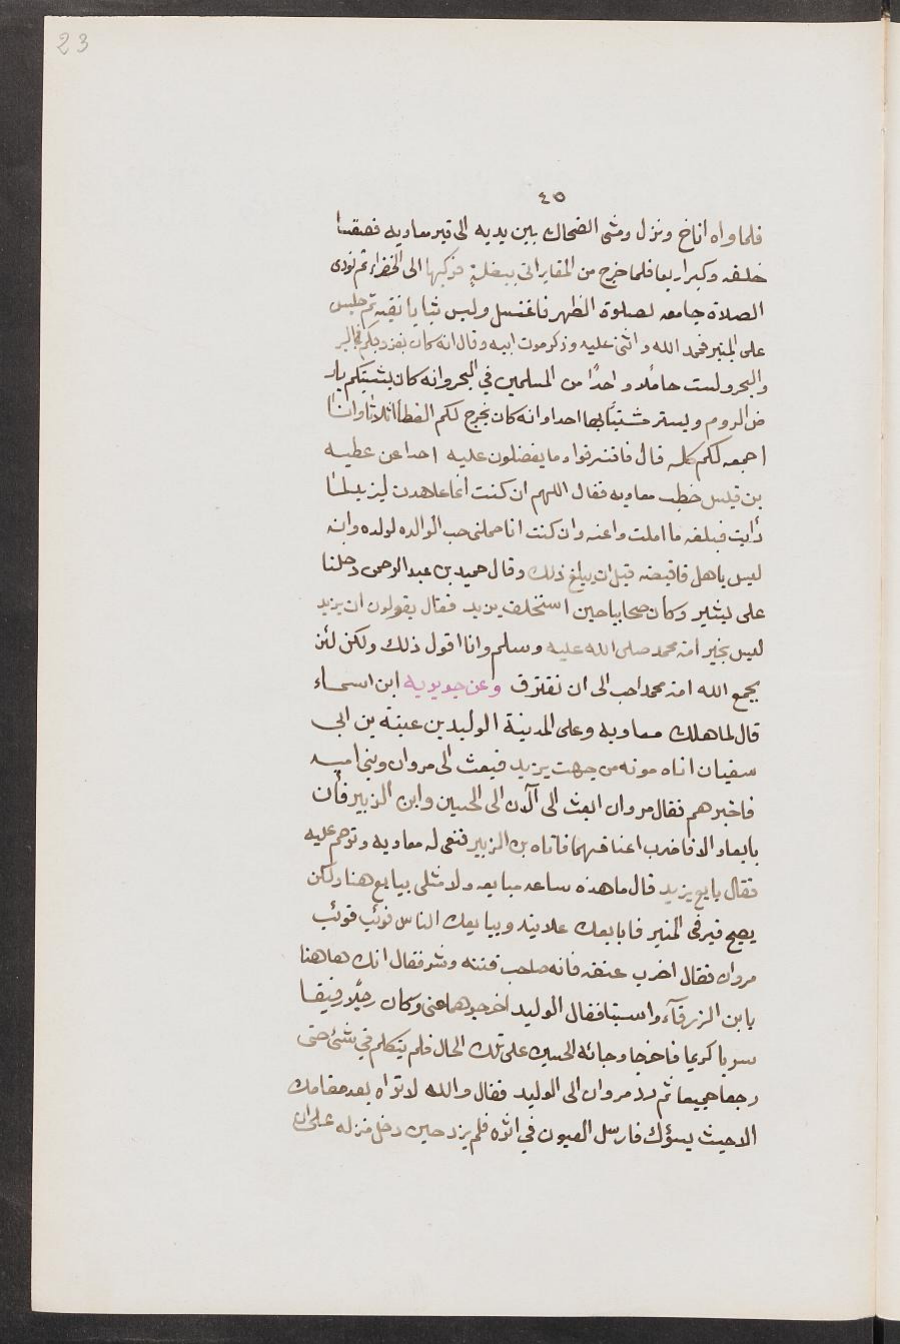 23
٤٥
فلما واه اناخ ونزل ومشى الضحاك بين يديه الى قبر معاويه فصفنا
خلفه وكبر اربعا فلما خرج من المقابر اتى ببغلةٍ فركبها الى الخضراء ثم نودى
الصلاة جامعه لصلوة الظهر فاغتسل ولبس ثيابا نقيه ثم جلس
على المنبر فحمد الله واثنى عليه وذكر موت ابيه وقال انه كان يغزو بكم فى البر
والبحر ولست حاملا واحدًا من المسلمين في البحر وانه كان يشتيكم بار
ض الروم ولست مشتيًا بها احدا وانه كان يخرج لكم العطا اثلاثا وانا
اجمعه لكم كله قال فافترقوا وما يفضلون عليه احدا عن عطيه
بن قيس خطب معاويه فقال اللهم ان كنت انما عهدت ليزيد لما
رايت فبلغه ما املت واعنه وان كنت انما حملنى حب الوالد لولده وانه
ليس باهل فاقبضه قبل ان يبلغ ذلك وقال حميد بن عبد الرحمن دخلنا
على بشير وكان صحابيا حين استخلف يزيد فقال يقولون ان يزيد
ليس بخير امة محمد صلى الله عليه وسلم وانا اقول ذلك ولكن لئن
يجمع الله امة محمد احب الى ان تفترق وعن جويريه ابن اسماء
قال لما هلك معاويه وعلى المدينة الوليد بن عتبة بن ابى
سفيان اتاه موته من جهت يزيد فبعث الى مروان وبنى اميه
فاخبرهم فقال مروان ابعث الى الآن الى الحسين وابن الزبير فان
بايعا والا فاضرب اعناقهما فاتاه بن الزبير فنعى له معاويه وترحم عليه
فقال بايع يزيد قال ما هذه ساعه مبايعه ولا مثلى يبايع هنا ولكن
يصبح فترقى المنبر فابايعك علانية ويبايعك الناس فوثب
مروان فقال اضرب عنقه فانه صاحب فتنه وشر فقال انك هاهنا
يا ابن الزرقآء واستبا فقال الوليد اخرجوهما عنى وكان رجلًا رفيقا
سريا كريما فاخرجا وجائه الحسين على تلك الحال فلم يتكلم في شئ حتى
رجعا جميعا ثم رد مروان الى الوليد فقال والله لا تراه بعد مقامك
الا حيث يسؤك فارسل العيون في اثره فلم يزد حين دخل منزله على ان